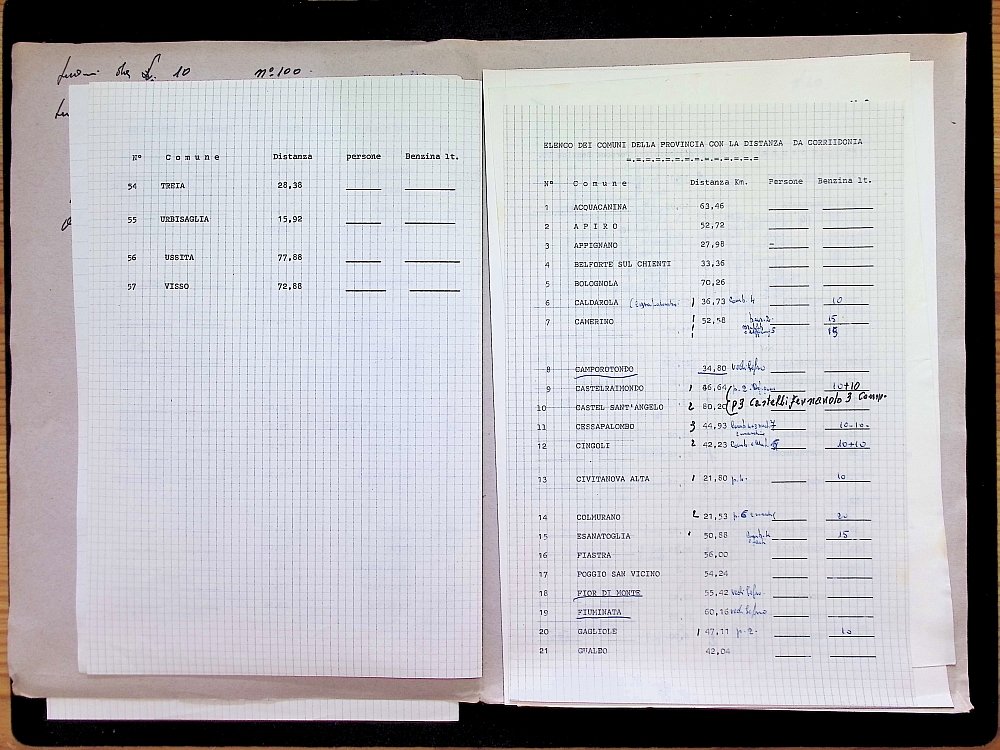 L. 10 nº 100
Nº Comune Distanza persone Benzina lt.
54 TREIA 28,38
55 URBISAGLIA 15,92
56 USSITA 77,88
57 VISSO 72,88
ELENCO DEI COMUNI DELLA PROVINCIA CON LA DISTANZA DA CORRIIDONIA
=.=.=.=.=.=.=.=.=.=.=.=
Nº Comune Distanza Km. Persone Benzina lt.
1 ACQUACANINA 63,46
2 APIRO 52,72
3 APPIGNANO 27,98
4 BELFORTE SUL CHIENTI 33,36
5 BOLOGNOLA 70,26
6 CALDAROLA 1 36,73 Comb. 4 10
7 CAMERINO 1 52,58 15
15
8 CAMPOROTONDO 34,80
9 CASTELRAIMONDO 1 46,64 p. 2 10+10
10 CASTEL SANT'ANGELO 2 80,20 p3 Castelli Fernando 3 Comp.
11 CESSAPALOMBO 3 44,93 7 10-10-
12 CINGOLI 2 42,23 10+10
13 CIVITANOVA ALTA 1 21,80 10
14 COLMURANO 2 21,53 p. 6 20
15 ESANATOGLIA 50,88 15
16 FIASTRA 56,00
17 POGGIO SAN VICINO 54,24
18 FIOR DI MONTE 55,42
19 FIUMINATA 60,16
20 GAGLIOLE 1 47,11 p. 2. 10
21 GUALDO 42,04